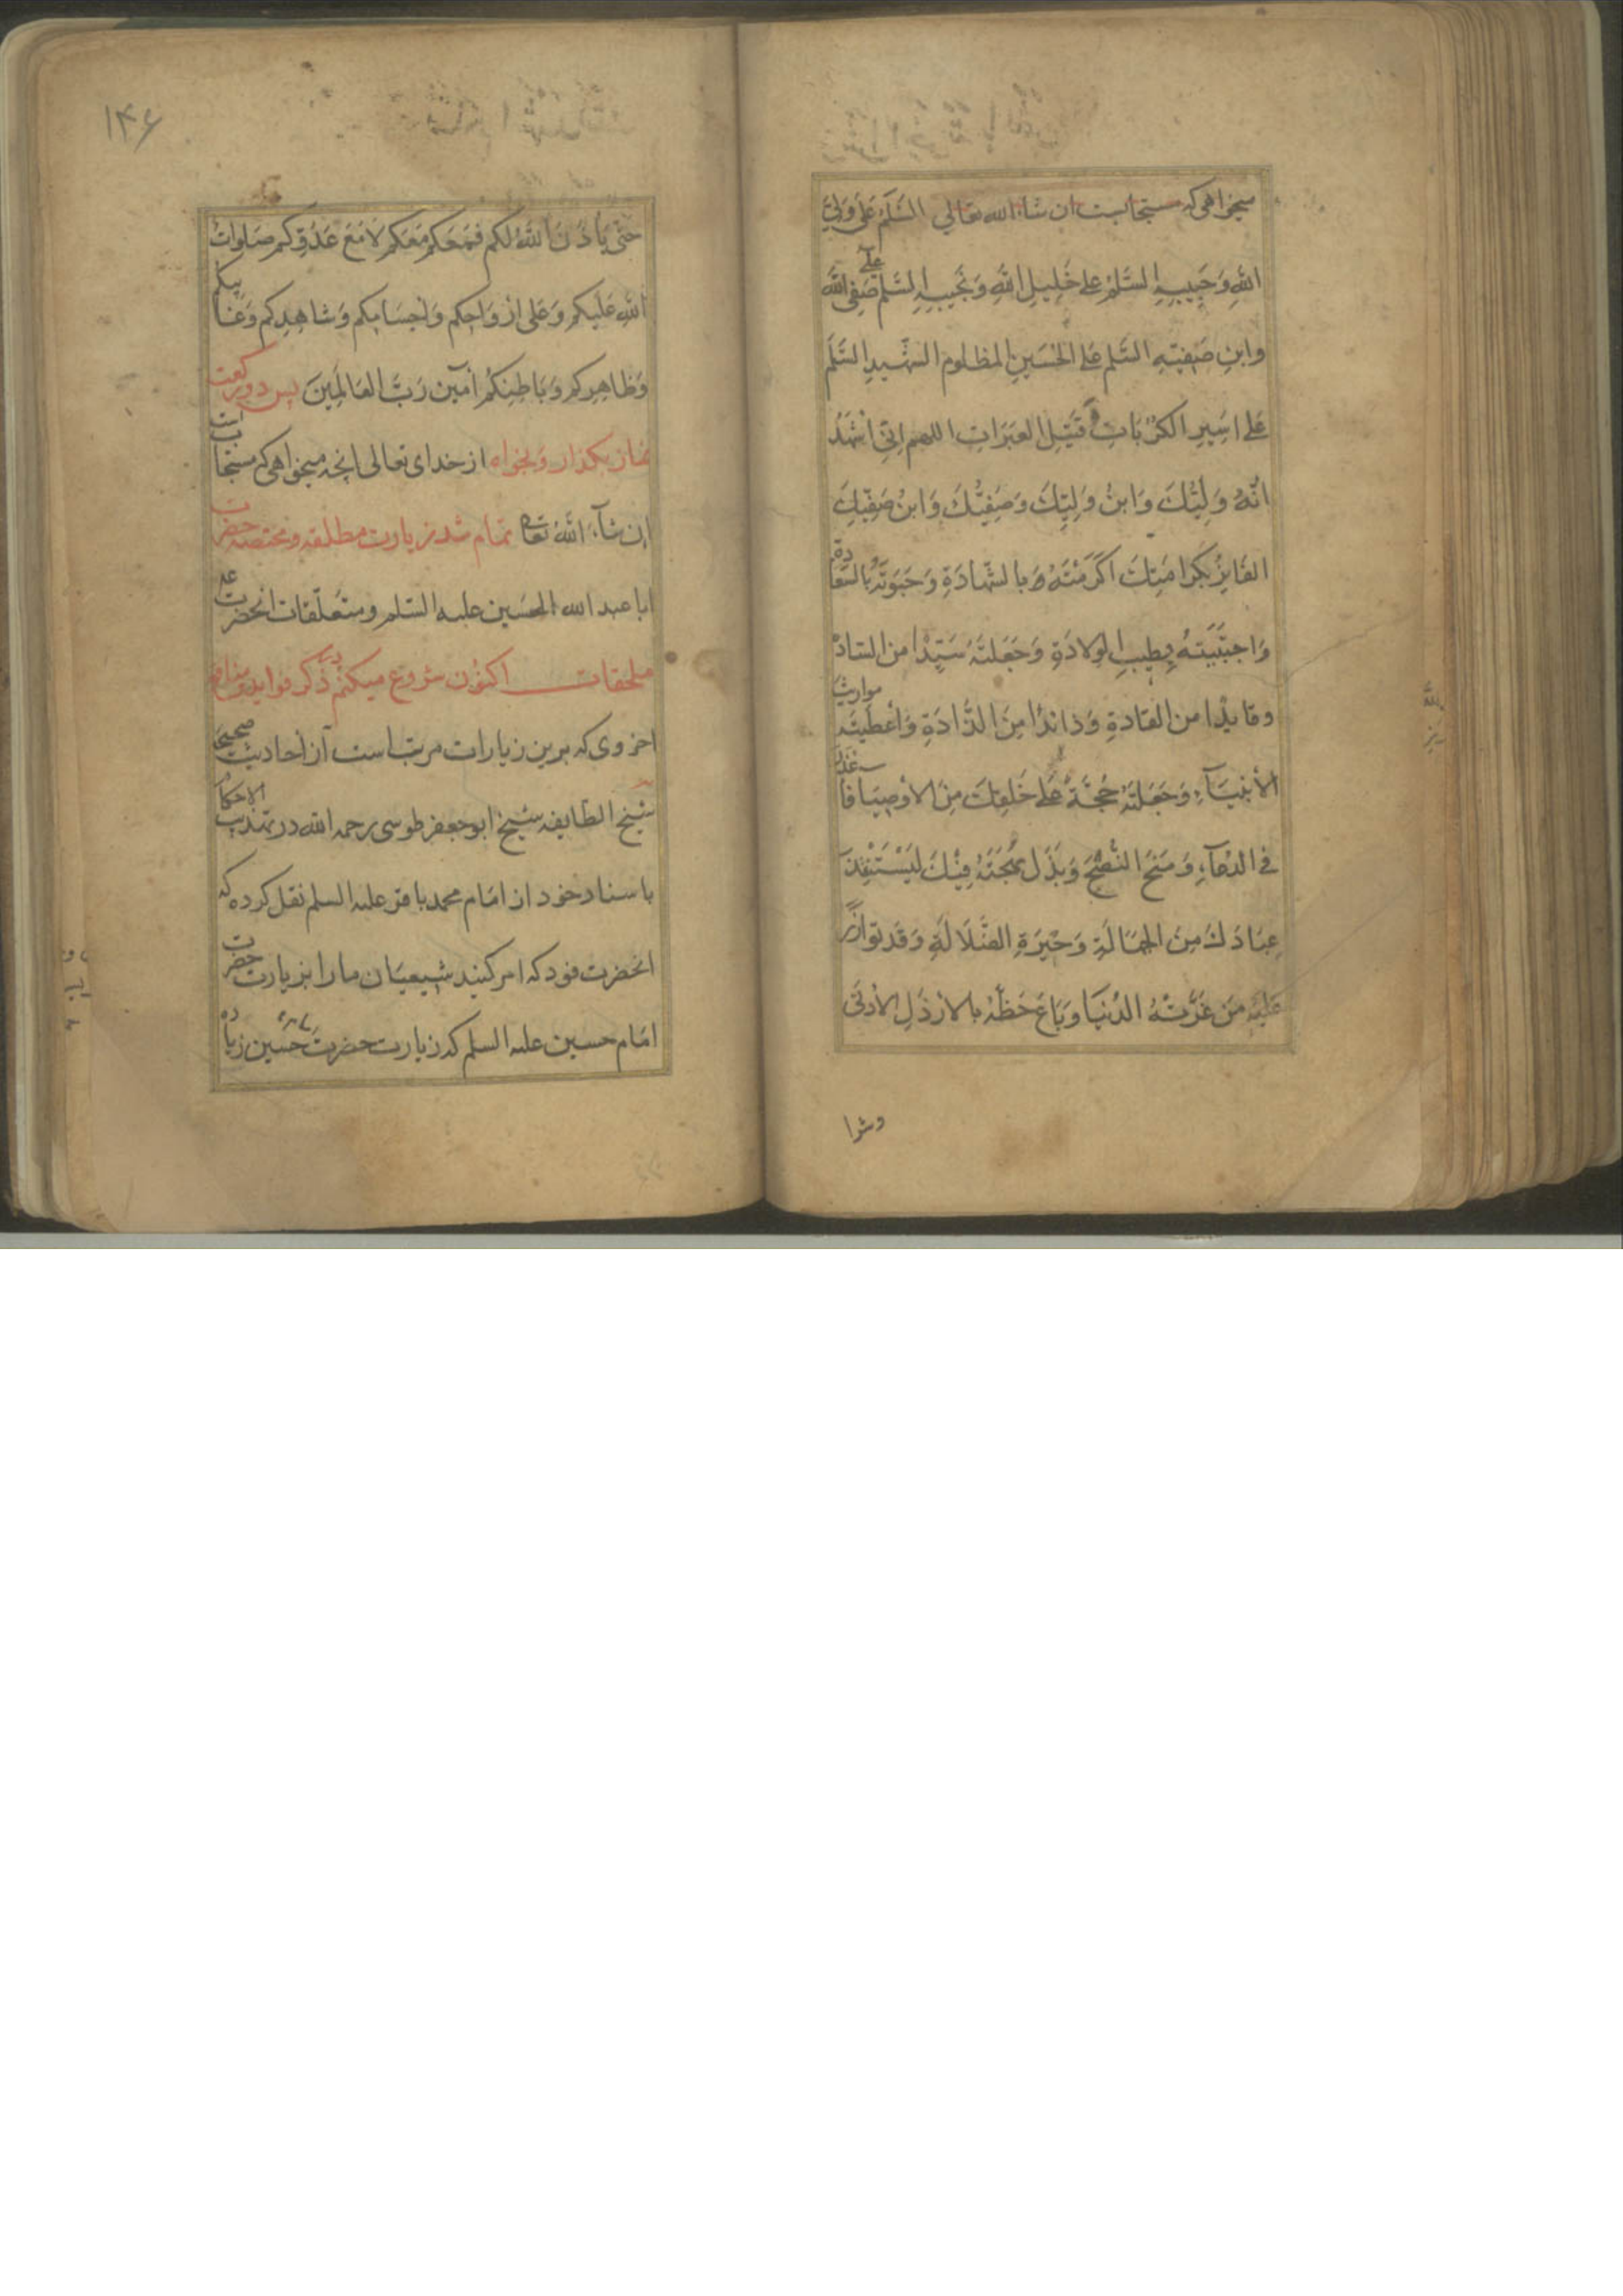 میخواهی که مستجابست ان شاء الله تعالی السَّلَمُ عَلَی وَلِیِّ
اللهِ وَحَبِیبِهِ السَّلَمُ علی خَلِیلِ اللهِ وَنَجِیبِهِ السَّلَم عَلی صَفِی اللهِ
وابنِ صَفِیِّهِ السَّلم عَلی الحُسَینِ المظلوم الشَّهیدِ السَّلَم
عَلی اَسِیرِ الکُرُبَاتِ وَ قَتِیلِ العَبَرَاتِ اللهم اِنِّی اَشْهَدُ
اَنَّهُ وَلِیُّكَ وَابنُ وَلِیِّكَ وَصَفِیُّكَ وَابنُ صَفِیِّكَ
الفَایِزُ بِکَرَامَتِكَ اَکْرَمْتَهُ بالشَّهادَةِ وَحَبَوتَهُ بِالسَّعَادَةِ
وَاجتَبَیتَهُ بِطِیبِ الوِلادَةِ وَجَعَلتَهُ سَیِّدًا من السَّادَةِ
وقایدًا من القادةِ وَذائدًا مِنَ الذَّادَةِ وَاَعْطَیتَهُ مواریثَ
الأنبِیَآءِ وَجَعَلتَهُ حُجَّةً عَلی خَلقِكَ مِنَ الاوصِیَا فَاَعْذَرَ
فی الدُعآءِ وَمَنَحَ النُّصْحَ وَبَذَلَ مُهجَتَهُ فِیْكَ لِیَسْتَنْقِذَ
عِبَادَكَ مِنَ الجَهَالَةِ وَحَیرَةِ الضَّلَالَةِ وَقَد تَوازَرَ
عَلَیهِ مَن غَرَّتهُ الدُنیَا وَبَاعَ حَظَّهُ بالارذَلِ الأدنَی
وشرا
۱۴۶
حَتّی یَأذَنَ اللَّهُ لکم فَمَعَکم مَعَکم لَا مَعَ عَدُوِّکم صَلَواتُ
اللهِ عَلَیکم وَعَلی اَروَاحِکم وَاَجسَامِکم وَشاهِدِکم وَغَائِبِکم
وَظَاهِرِکم وَبَاطِنِکُم آمین رَبَّ العَالَمِینَ پس دو رکعت
نماز بگذار و بخواه از خدای تعالی انچه میخواهی که مستجابست
ان شآء الله تعالی تمام شد زیارت مطلقه و مختصه حضرت
ابا عبد الله الحسین علیه السَّلم و متعلّقات انحضرت علیه
ملحقات اکنون شروع میکنم در ذکر فواید و منافع
اخروی که برین زیارات مرتب است از احادیث صحیحه
شیخ الطایفه شیخ ابو جعفر طوسی رحمه الله در تهذیب الاحکام
باسناد خود از امام محمد باقر علیه السلم نقل کرده که
انحضرت فرمود که امر کنید شیعیان ما را بزیارت حضرت
امام حسین علیه السلم که زیارت حضرت حسین زیاده